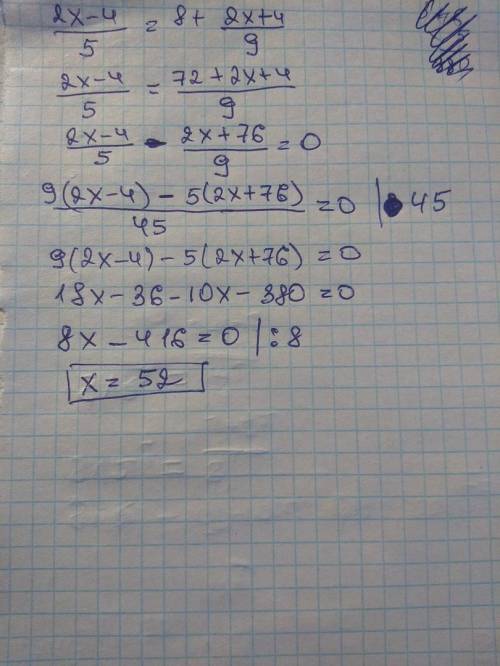 2x-4/5 = 8+ 2x+4/9
2x-4/5 = 72+2x+4/9
2x-4/5 - 2x+76/9 = 0
9(2x-4) - 5(2x+76)/45 = 0 | • 45
9(2x-4) - 5(2x+76) = 0
18x-36-10x-380=0
8x-416=0 | : 8
x = 52